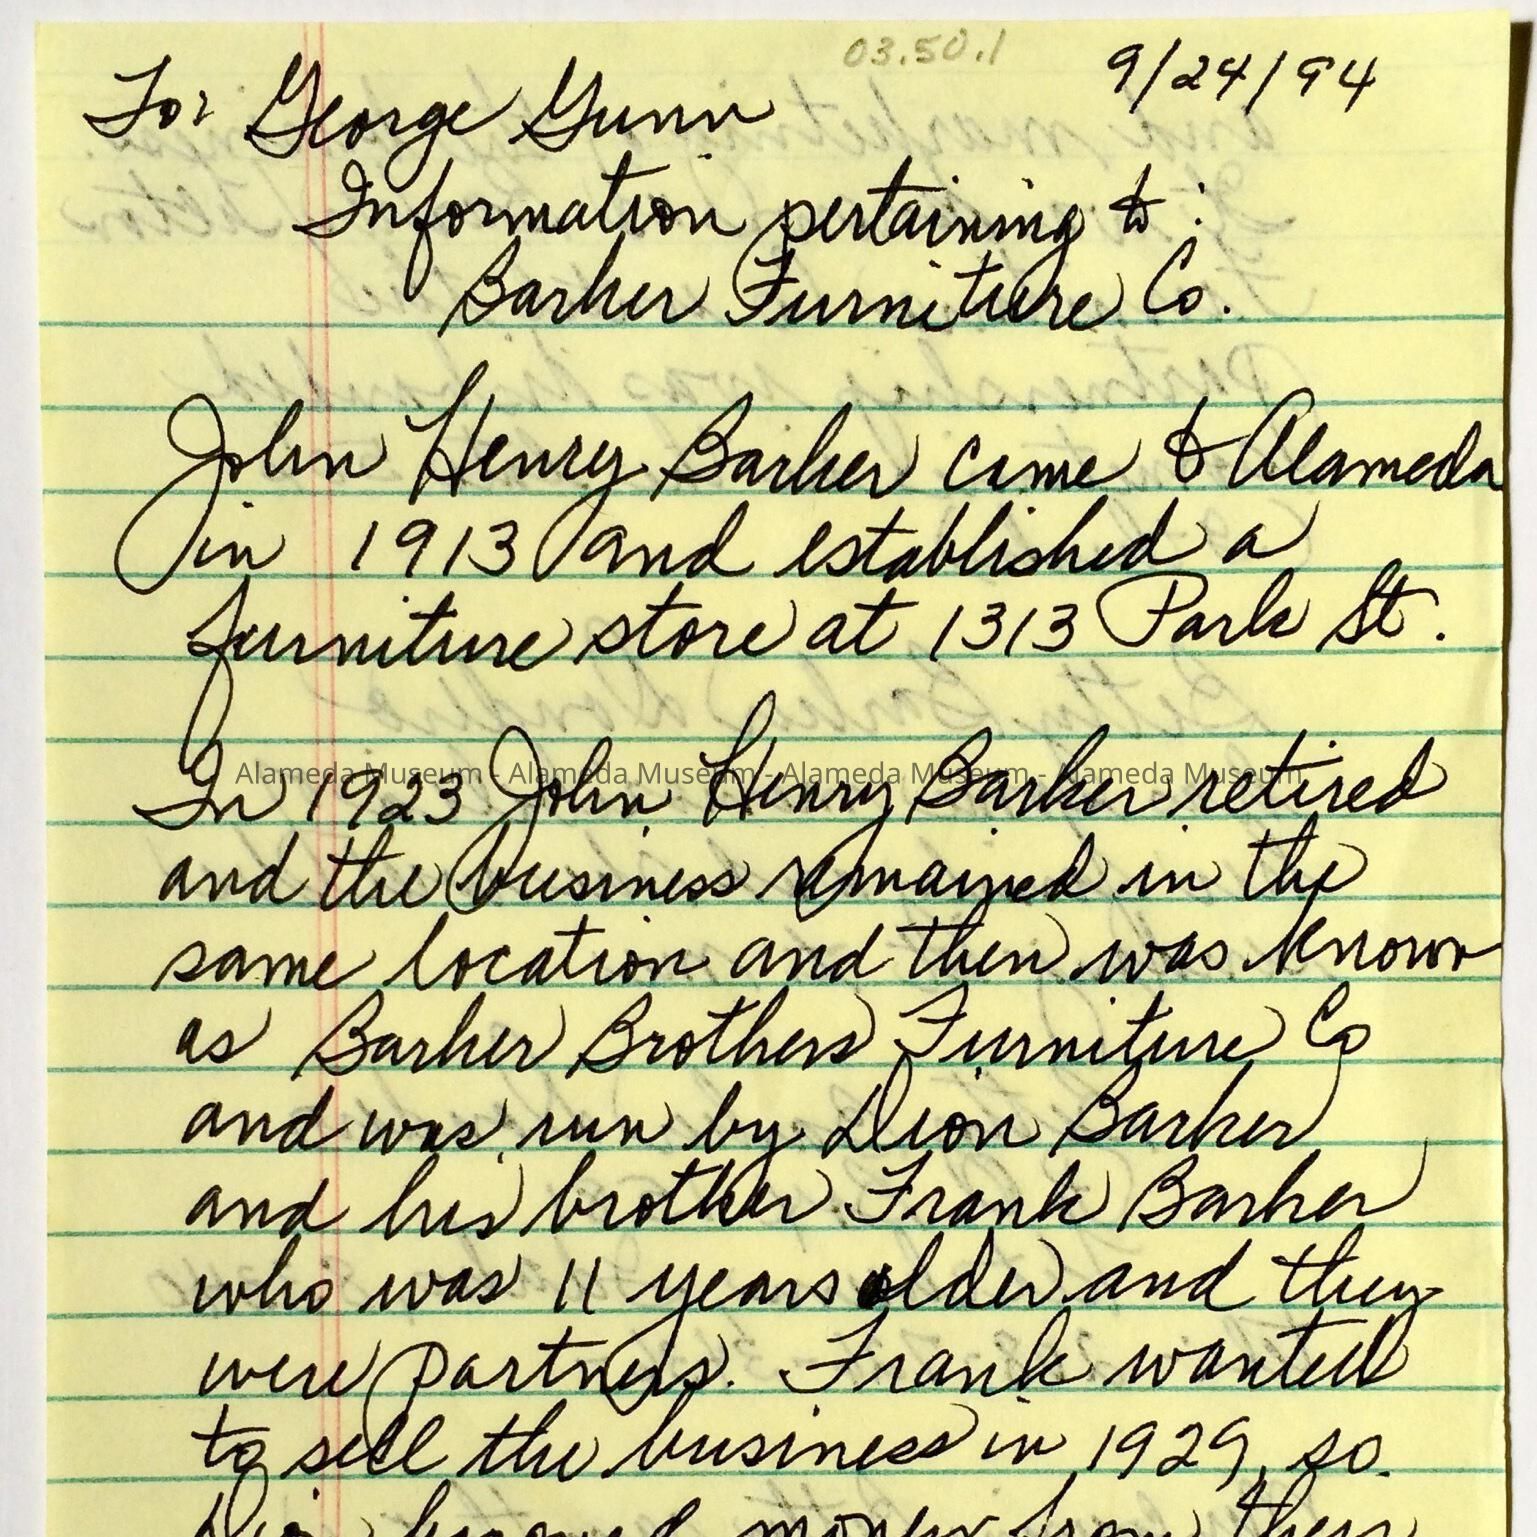 03.50.1
9/24/94
For George Gunn
Information pertaining to:
Barker Furniture Co.
John Henry Barker came to Alameda
in 1913 and established a
furniture store at 1313 Park St.
Alameda Museum - Alameda Museum - Alameda Museum - Alameda Museum
In 1923 John Henry Barker retired
and the business remained in the
same location and then was known
as Barker Brothers Furniture Co
and was run by Dion Barker
and his brother Frank Barker
who was 11 years older and they
were partners. Frank wanted
to sell the business in 1929, so
money from